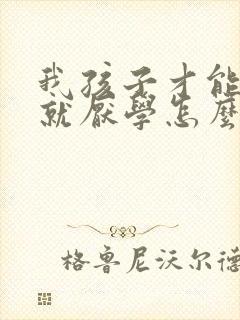 我孩子才能
就厭學怎麼
格鲁尼沃尔德